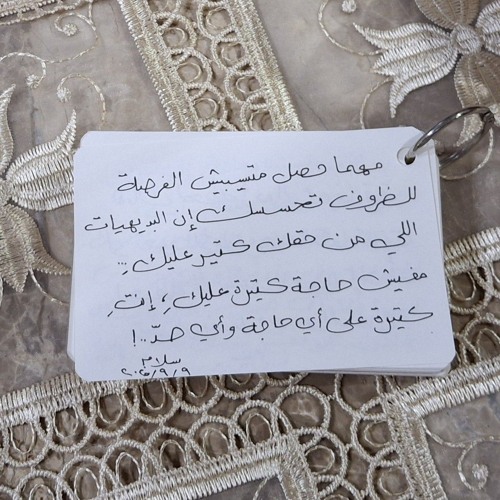 مهما حصل متسيبيش الفرصة
للظروف تحسسك إن البديهيات
اللي من حقك كتير عليكِ...
مفيش حاجة كتيرة عليكِ، إنتِ
كتيرة على أي حاجة وأي حدّ..!
سلام